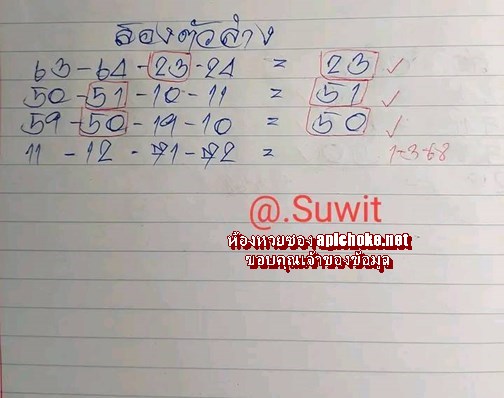 สองตัวล่าง
63-64-23-24 = 23 ✓
50-51-10-11 = 51 ✓
59-50-19-10 = 50 ✓
11-12-71-72 = 1-3-68
@.Suwit
ห้องหวยซอง apichoke.net
ขอบคุณเจ้าของข้อมูล